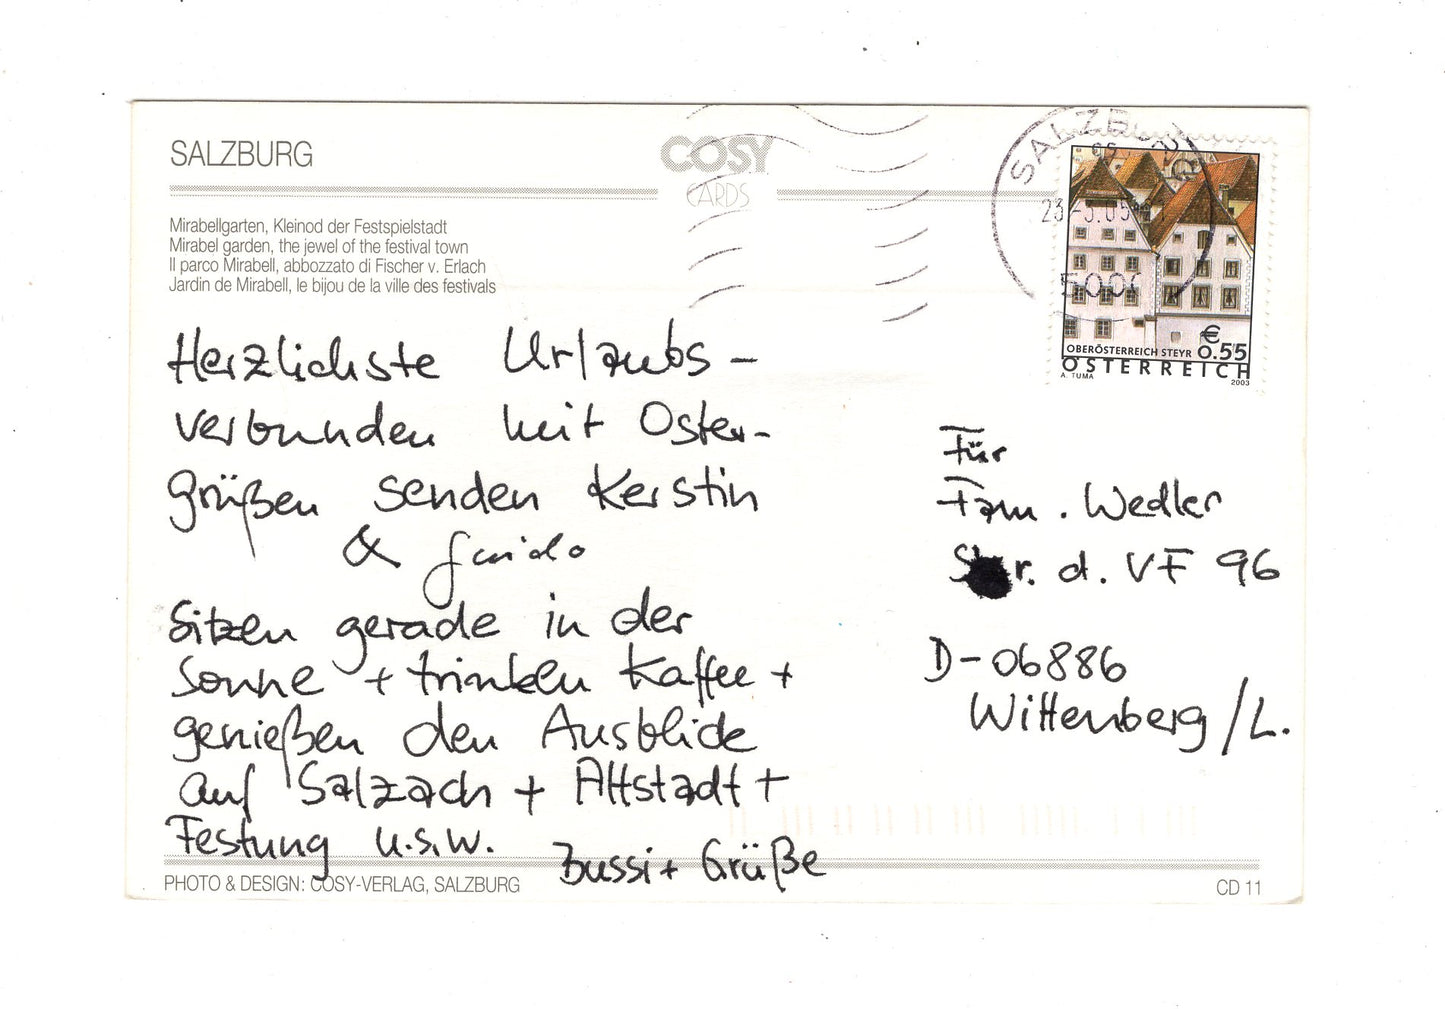 SALZBURG
COSY
CARDS
Mirabellgarten, Kleinod der Festspielstadt
Mirabel garden, the jewel of the festival town
Il parco Mirabell, abbozzato di Fischer v. Erlach
Jardin de Mirabell, le bijou de la ville des festivals
SALZBURG
23-3.05
OBERÖSTERREICH STEYR
€ 0.55
ÖSTERREICH
A. TUMA
2003
Herzlichste Urlaubs-
verbunden mit Oster-
grüßen senden Kerstin
& Guido
Sitzen gerade in der
Sonne + trinken Kaffee +
genießen den Ausblick
auf Salzach + Altstadt +
Festung u.s.w.
Bussi + Grüße
Für
Fam. Wedler
Str. d. VF 96
D-06886
Wittenberg/L.
PHOTO & DESIGN: COSY-VERLAG, SALZBURG
CD 11